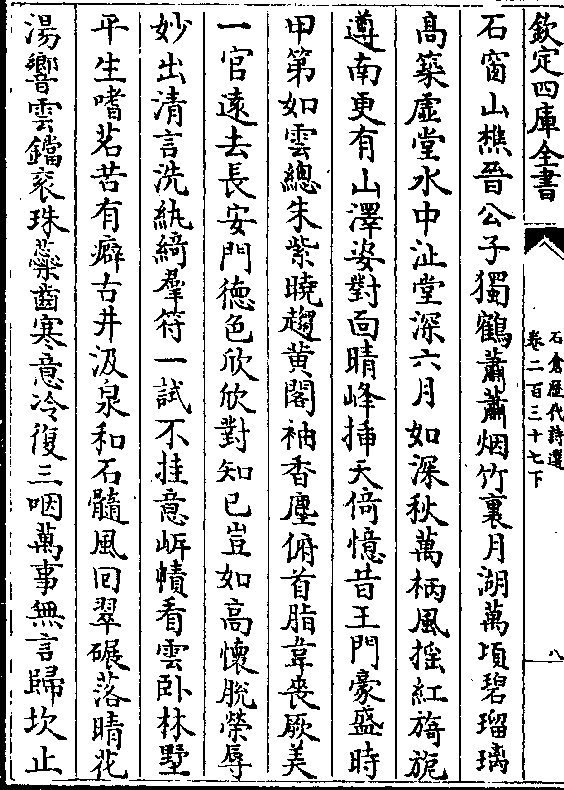 欽定四庫全書
石倉歷代詩選
卷二百三十七下
八
石窗山樵晉公子獨鶴蕭蕭烟竹裏月湖萬項碧瑠璃
髙築虛堂水中沚堂深六月如深秋萬柄風揺紅旖旎
遵南更有山澤姿對面晴峰插天倚憶昔王門豪盛時
甲第如雲總朱紫曉趨黄閣袖香塵俯首脂韋喪厥美
一官遠去長安門德色欣欣對知已豈如高懷脱榮辱
妙出清言洗紈綺羣符一試不挂意岸幘看雲卧林墅
平生嗜茗苦有癖古井汲泉和石髓風回翠碾落晴花
湯響雲鐺衮珠蘂齒寒意冷復三咽萬事無言歸坎止